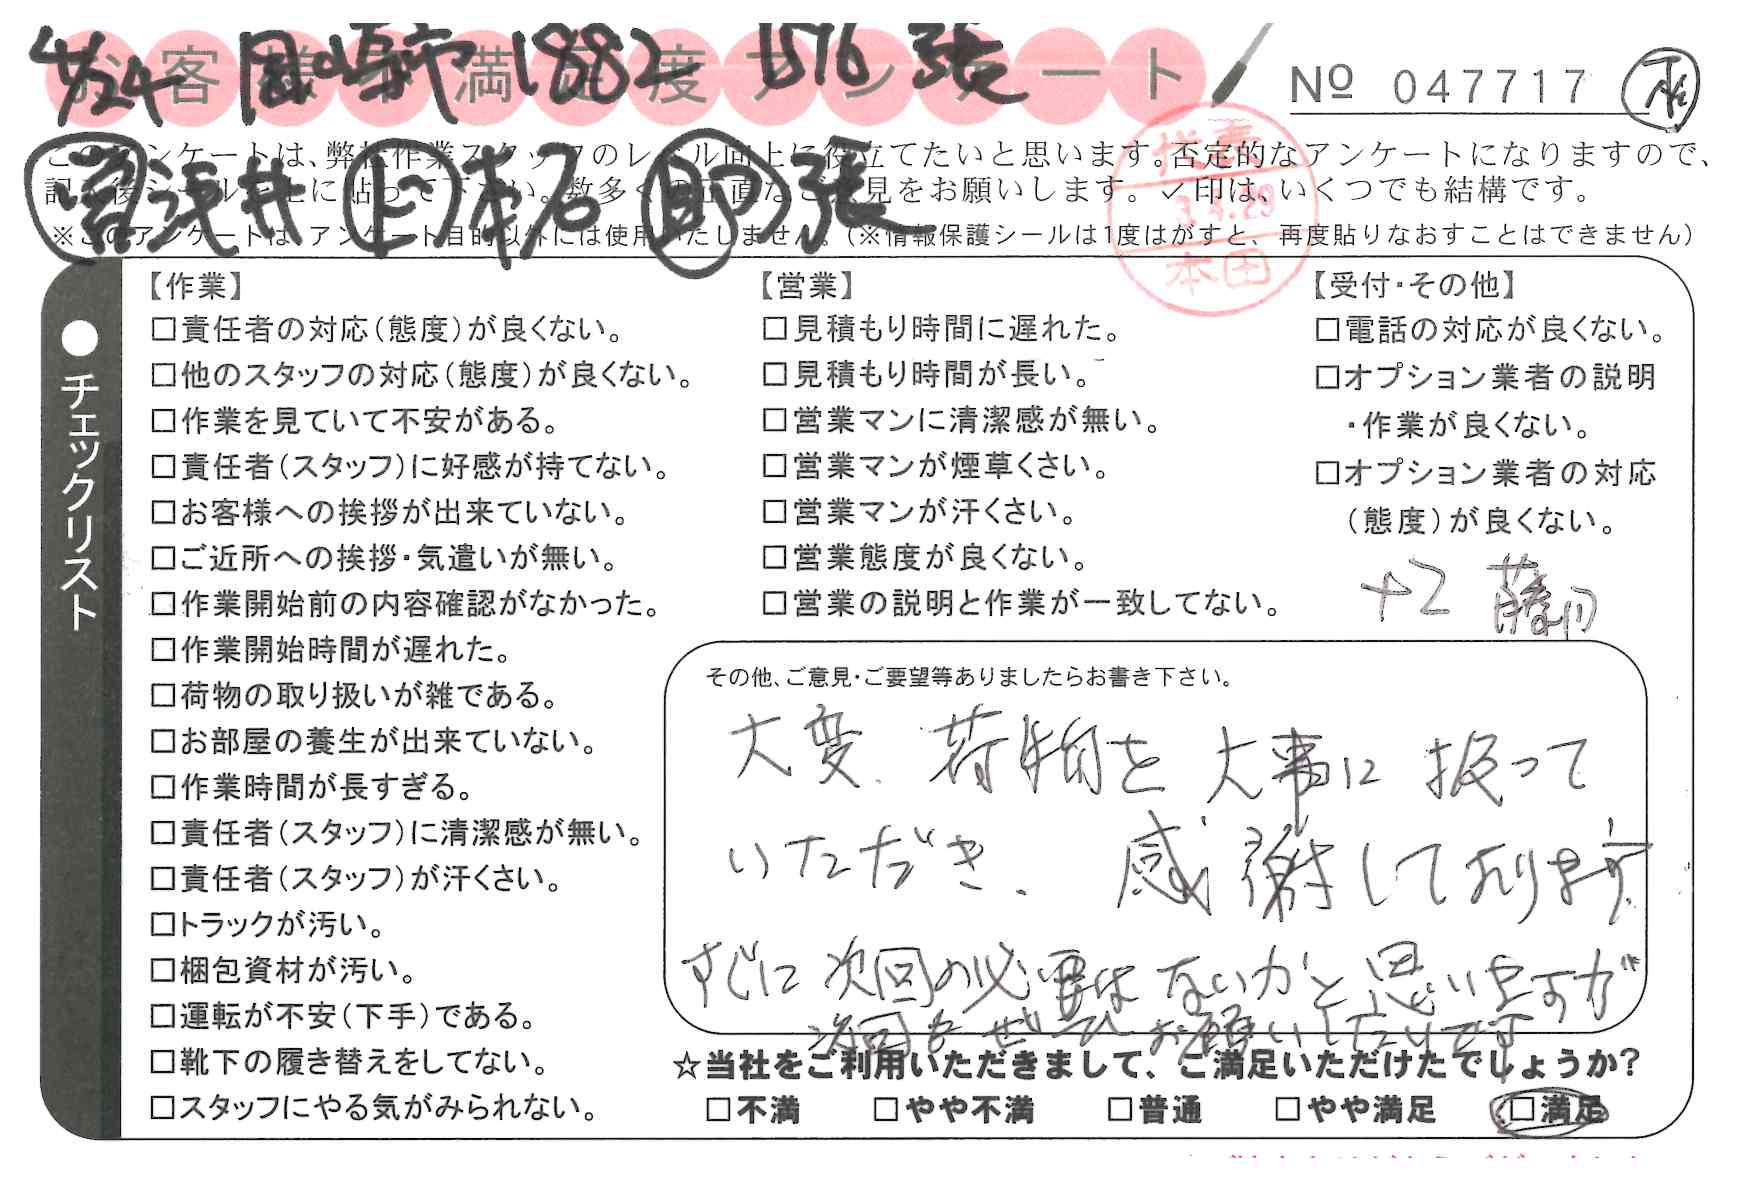 お客様不満足度アンケート
4/24 岡崎市 1882 1576 張
Nº 047717
このアンケートは、弊社作業スタッフのレベル向上に役立てたいと思います。否定的なアンケートになりますので、
記入後シールを上に貼って下さい。数多くの正直なご意見をお願いします。✓印は、いくつでも結構です。
浅井 上 柘 即 張
※このアンケートは、アンケート目的以外には使用いたしません。(※情報保護シールは1度はがすと、再度貼りなおすことはできません)
代表
3.4.29
本田
●チェックリスト
【作業】
□責任者の対応(態度)が良くない。
□他のスタッフの対応(態度)が良くない。
□作業を見ていて不安がある。
□責任者(スタッフ)に好感が持てない。
□お客様への挨拶が出来ていない。
□ご近所への挨拶・気遣いが無い。
□作業開始前の内容確認がなかった。
□作業開始時間が遅れた。
□荷物の取り扱いが雑である。
□お部屋の養生が出来ていない。
□作業時間が長すぎる。
□責任者(スタッフ)に清潔感が無い。
□責任者(スタッフ)が汗くさい。
□トラックが汚い。
□梱包資材が汚い。
□運転が不安(下手)である。
□靴下の履き替えをしてない。
□スタッフにやる気がみられない。
【営業】
□見積もり時間に遅れた。
□見積もり時間が長い。
□営業マンに清潔感が無い。
□営業マンが煙草くさい。
□営業マンが汗くさい。
□営業態度が良くない。
□営業の説明と作業が一致してない。
【受付・その他】
□電話の対応が良くない。
□オプション業者の説明
・作業が良くない。
□オプション業者の対応
(態度)が良くない。
+2
その他、ご意見・ご要望等ありましたらお書き下さい。
大変、荷物を大事に扱って
いただき、感謝しております。
すぐに次回の必要はないかと思いますが
次回もぜひお願いしたいです
☆当社をご利用いただきまして、ご満足いただけたでしょうか?
□不満 □やや不満 □普通 □やや満足 □満足